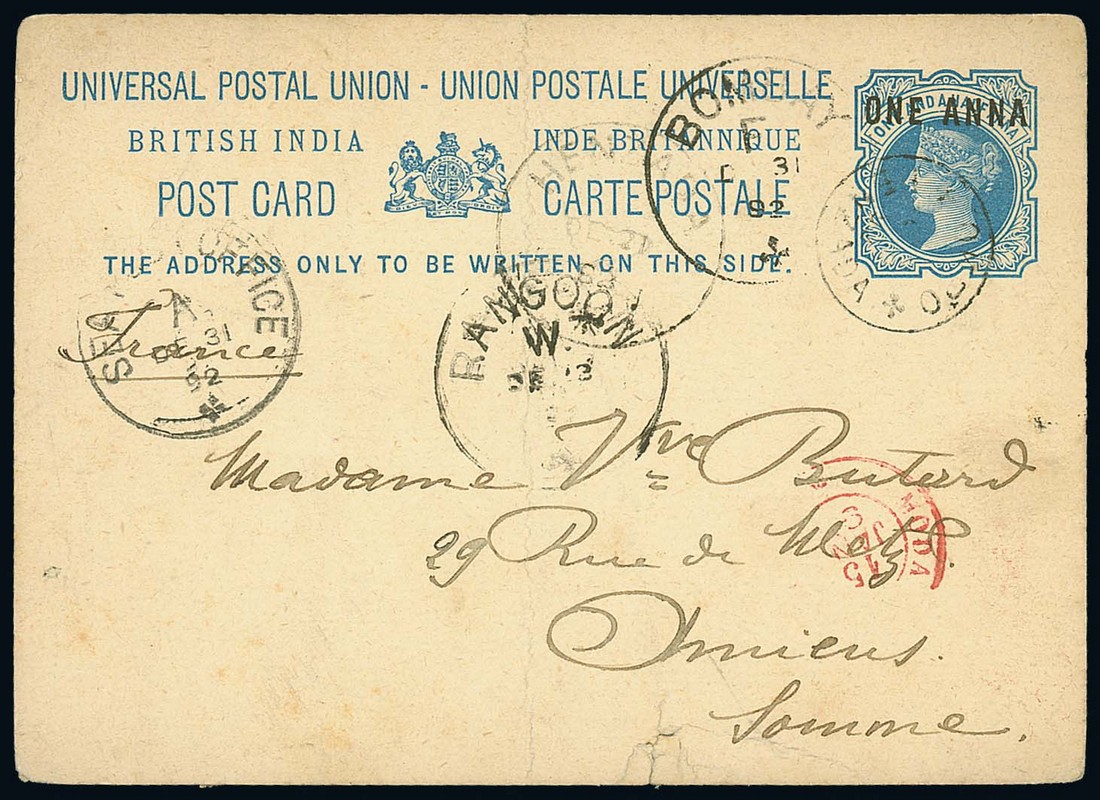 UNIVERSAL POSTAL UNION - UNION POSTALE UNIVERSELLE
ONE ANNA
BRITISH INDIA
INDE BRITANNIQUE
POST CARD
CARTE POSTALE
THE ADDRESS ONLY TO BE WRITTEN ON THIS SIDE.
BOMBAY
F
31
92
HENZADA
DE 21
SEA POST OFFICE
A
DE 31
92
RANGOON
W
DE
France
Madame Vve Butard
29 Rue de Metz.
Amiens.
Somme.
MODA
15